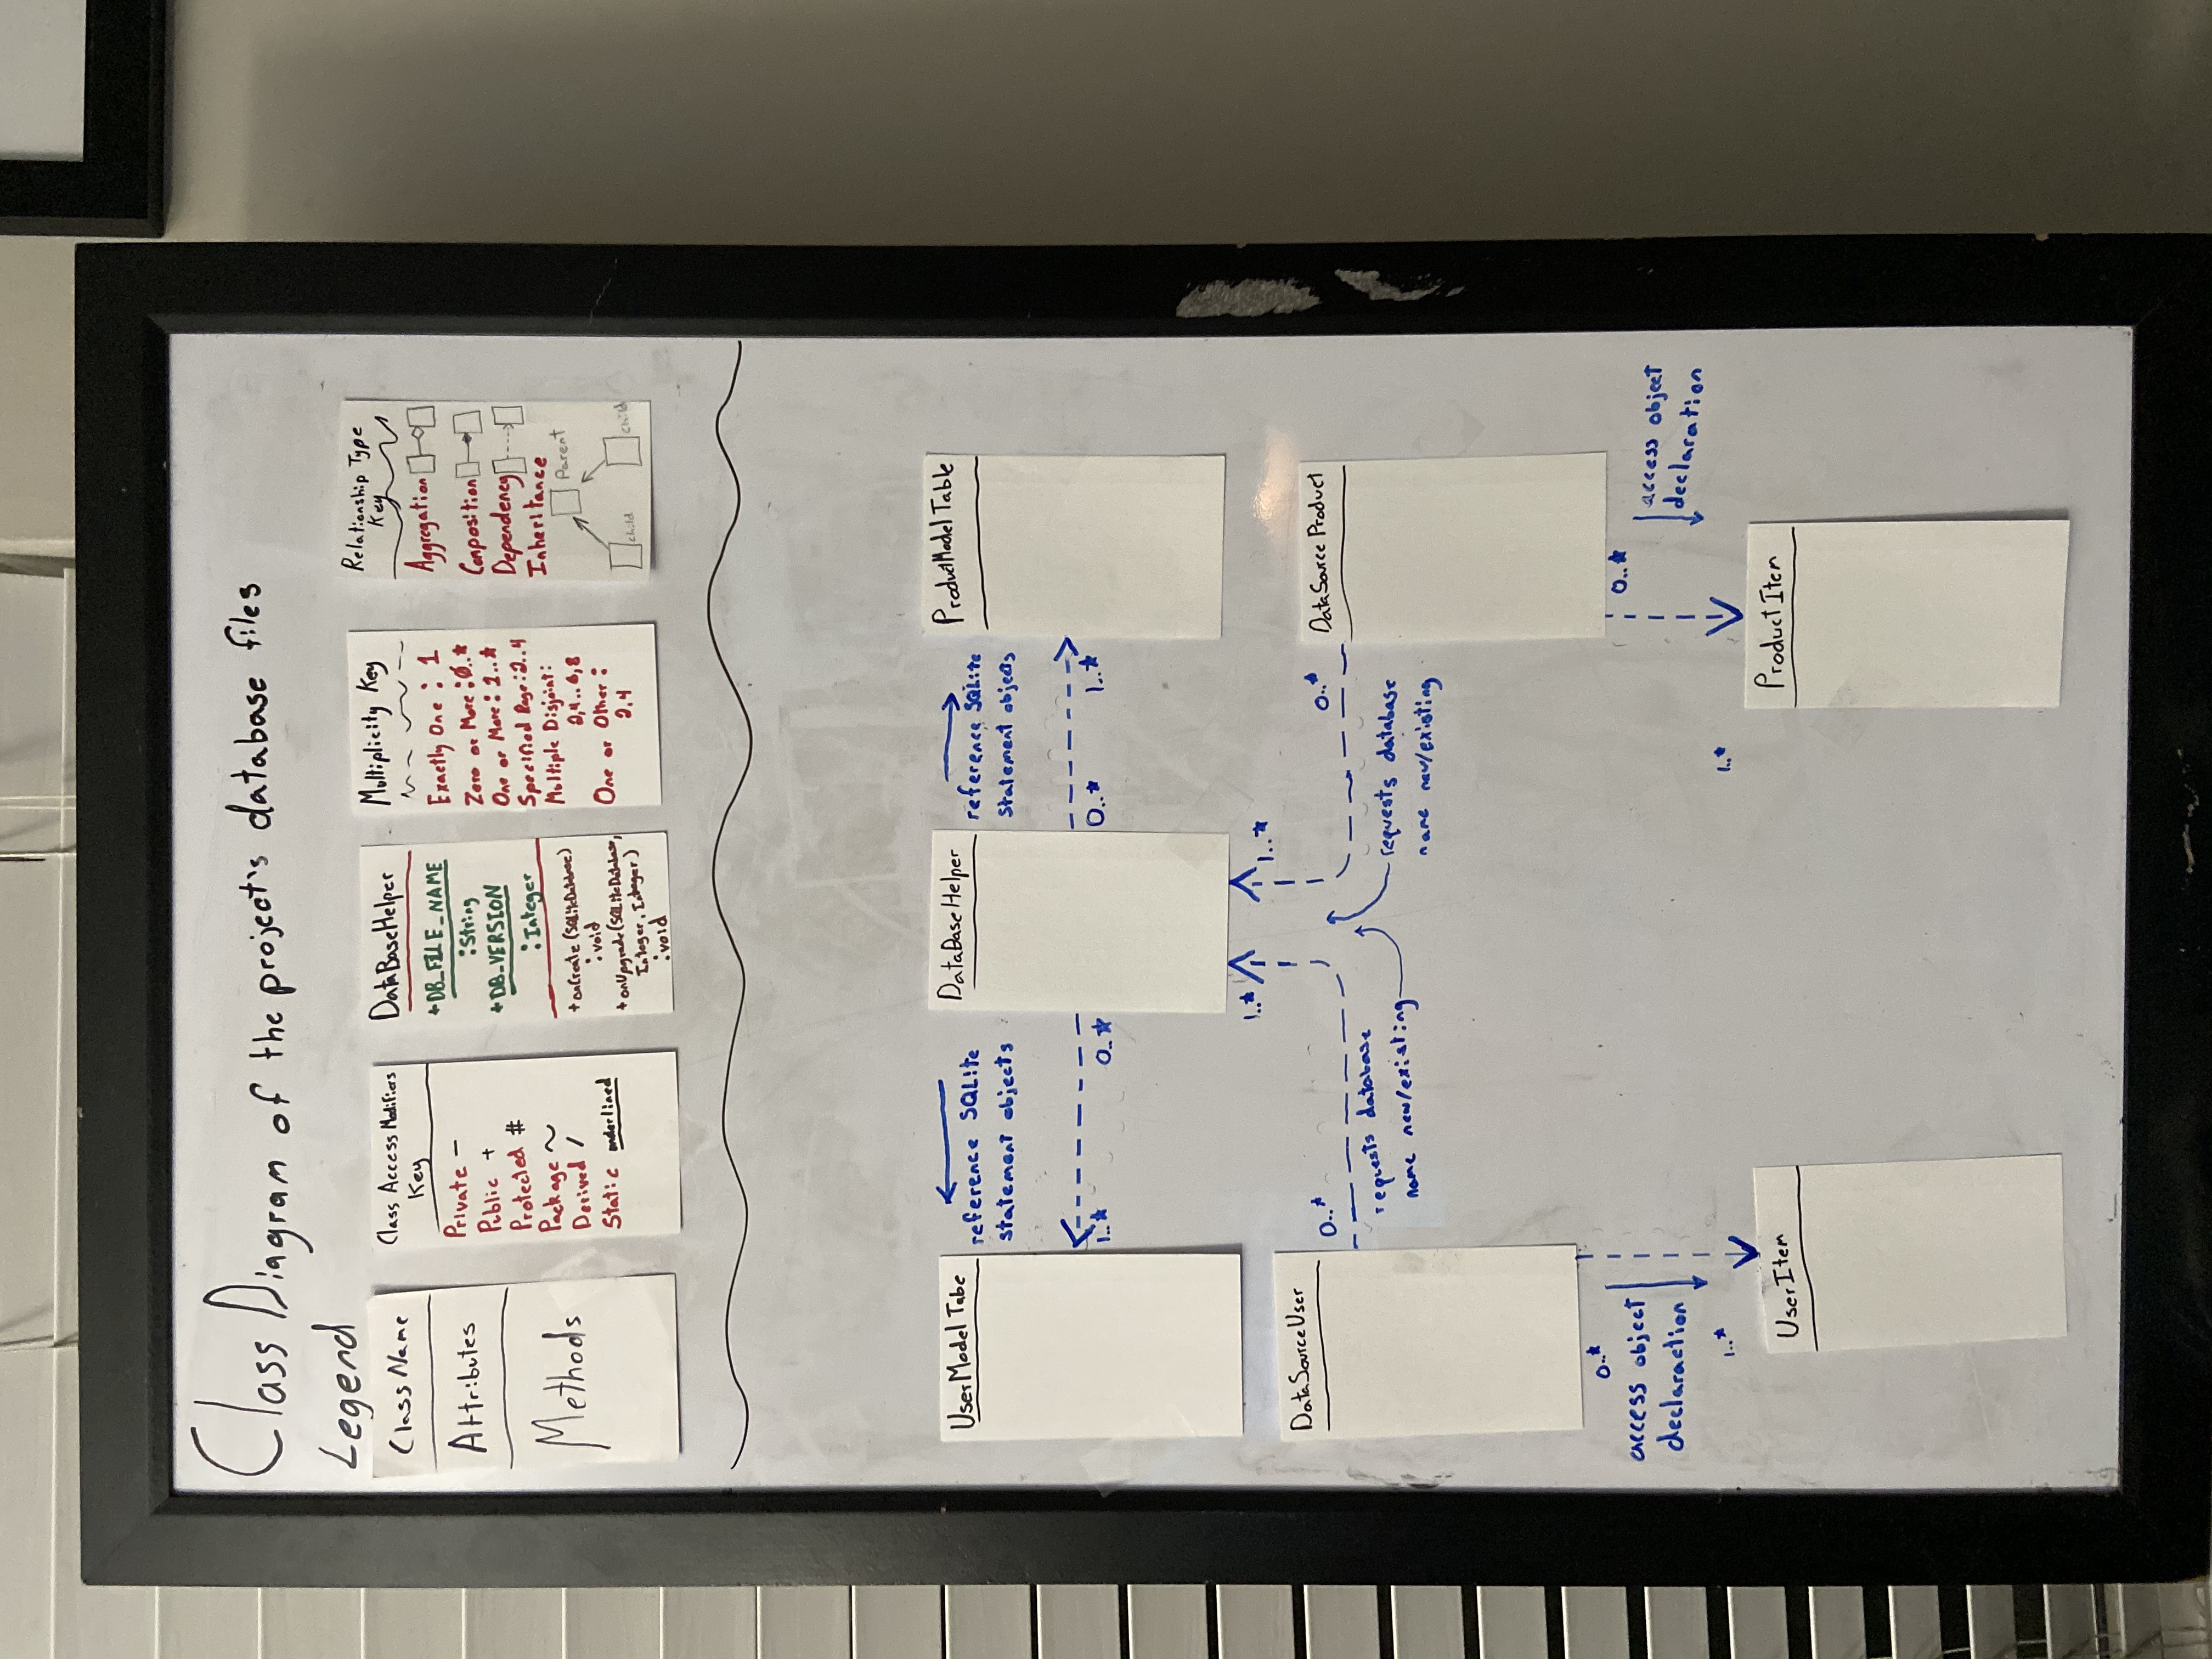 Class Diagram of the project's database files
Legend
Class Name
Attributes
Methods
Class Access Modifiers
Key
Private -
Public +
Protected #
Package ~
Derived /
Static underlined
DataBaseHelper
+DB_FILE_NAME
:String
+DB_VERSION
:Integer
+onCreate(SQLiteDatabase)
:void
+onUpgrade(SQLiteDatabase,
Integer, Integer)
:void
Multiplicity Key
Exactly One : 1
Zero or More : 0..*
One or More : 1..*
Specified Rage : 2..4
Multiple Disjoint:
2,4..6,8
One or Other :
2,4
Relationship Type
Key
Aggregation
Composition
Dependency
Inheritance
Parent
child
child
UserModel Tabe
reference SQLite
statement objects
1..*
0..*
DataBaseHelper
reference SQLite
statement objects
0..*
1..*
ProductModel Table
1..*
1..*
DataSourceUser
0..*
requests database
name new/existing
0..*
requests database
name new/existing
DataSource Product
0..*
access object
declaraction
1..*
0..*
access object
declaration
1..*
UserItem
Product Item